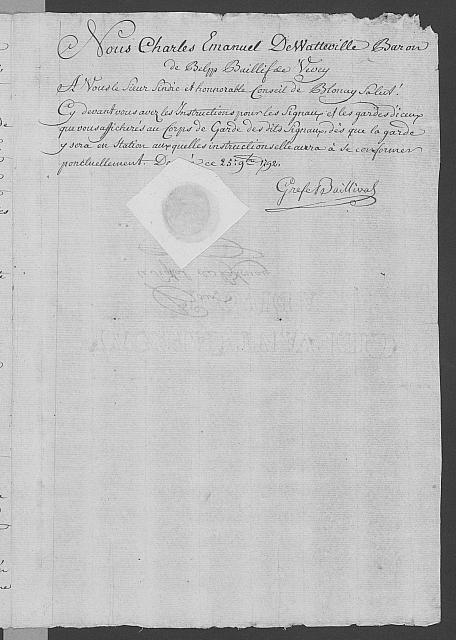 Nous Charles Emanuel DeWatteville Baron
de Belpp Baillif de Vevey
A Vous le Sieur Sindic et honnorable Conseil de Blonay Salut!
Cy devant vous avez les Instructions pour les Signaux et les gardes d'iceux
que vous afficherez au Corps de Garde des dits Signaux, dès que la garde
y sera en Station aux quelles instructions elle aura à se conformer
ponctuellement. ce 25e 9bre 1792.
Grefe Baillival